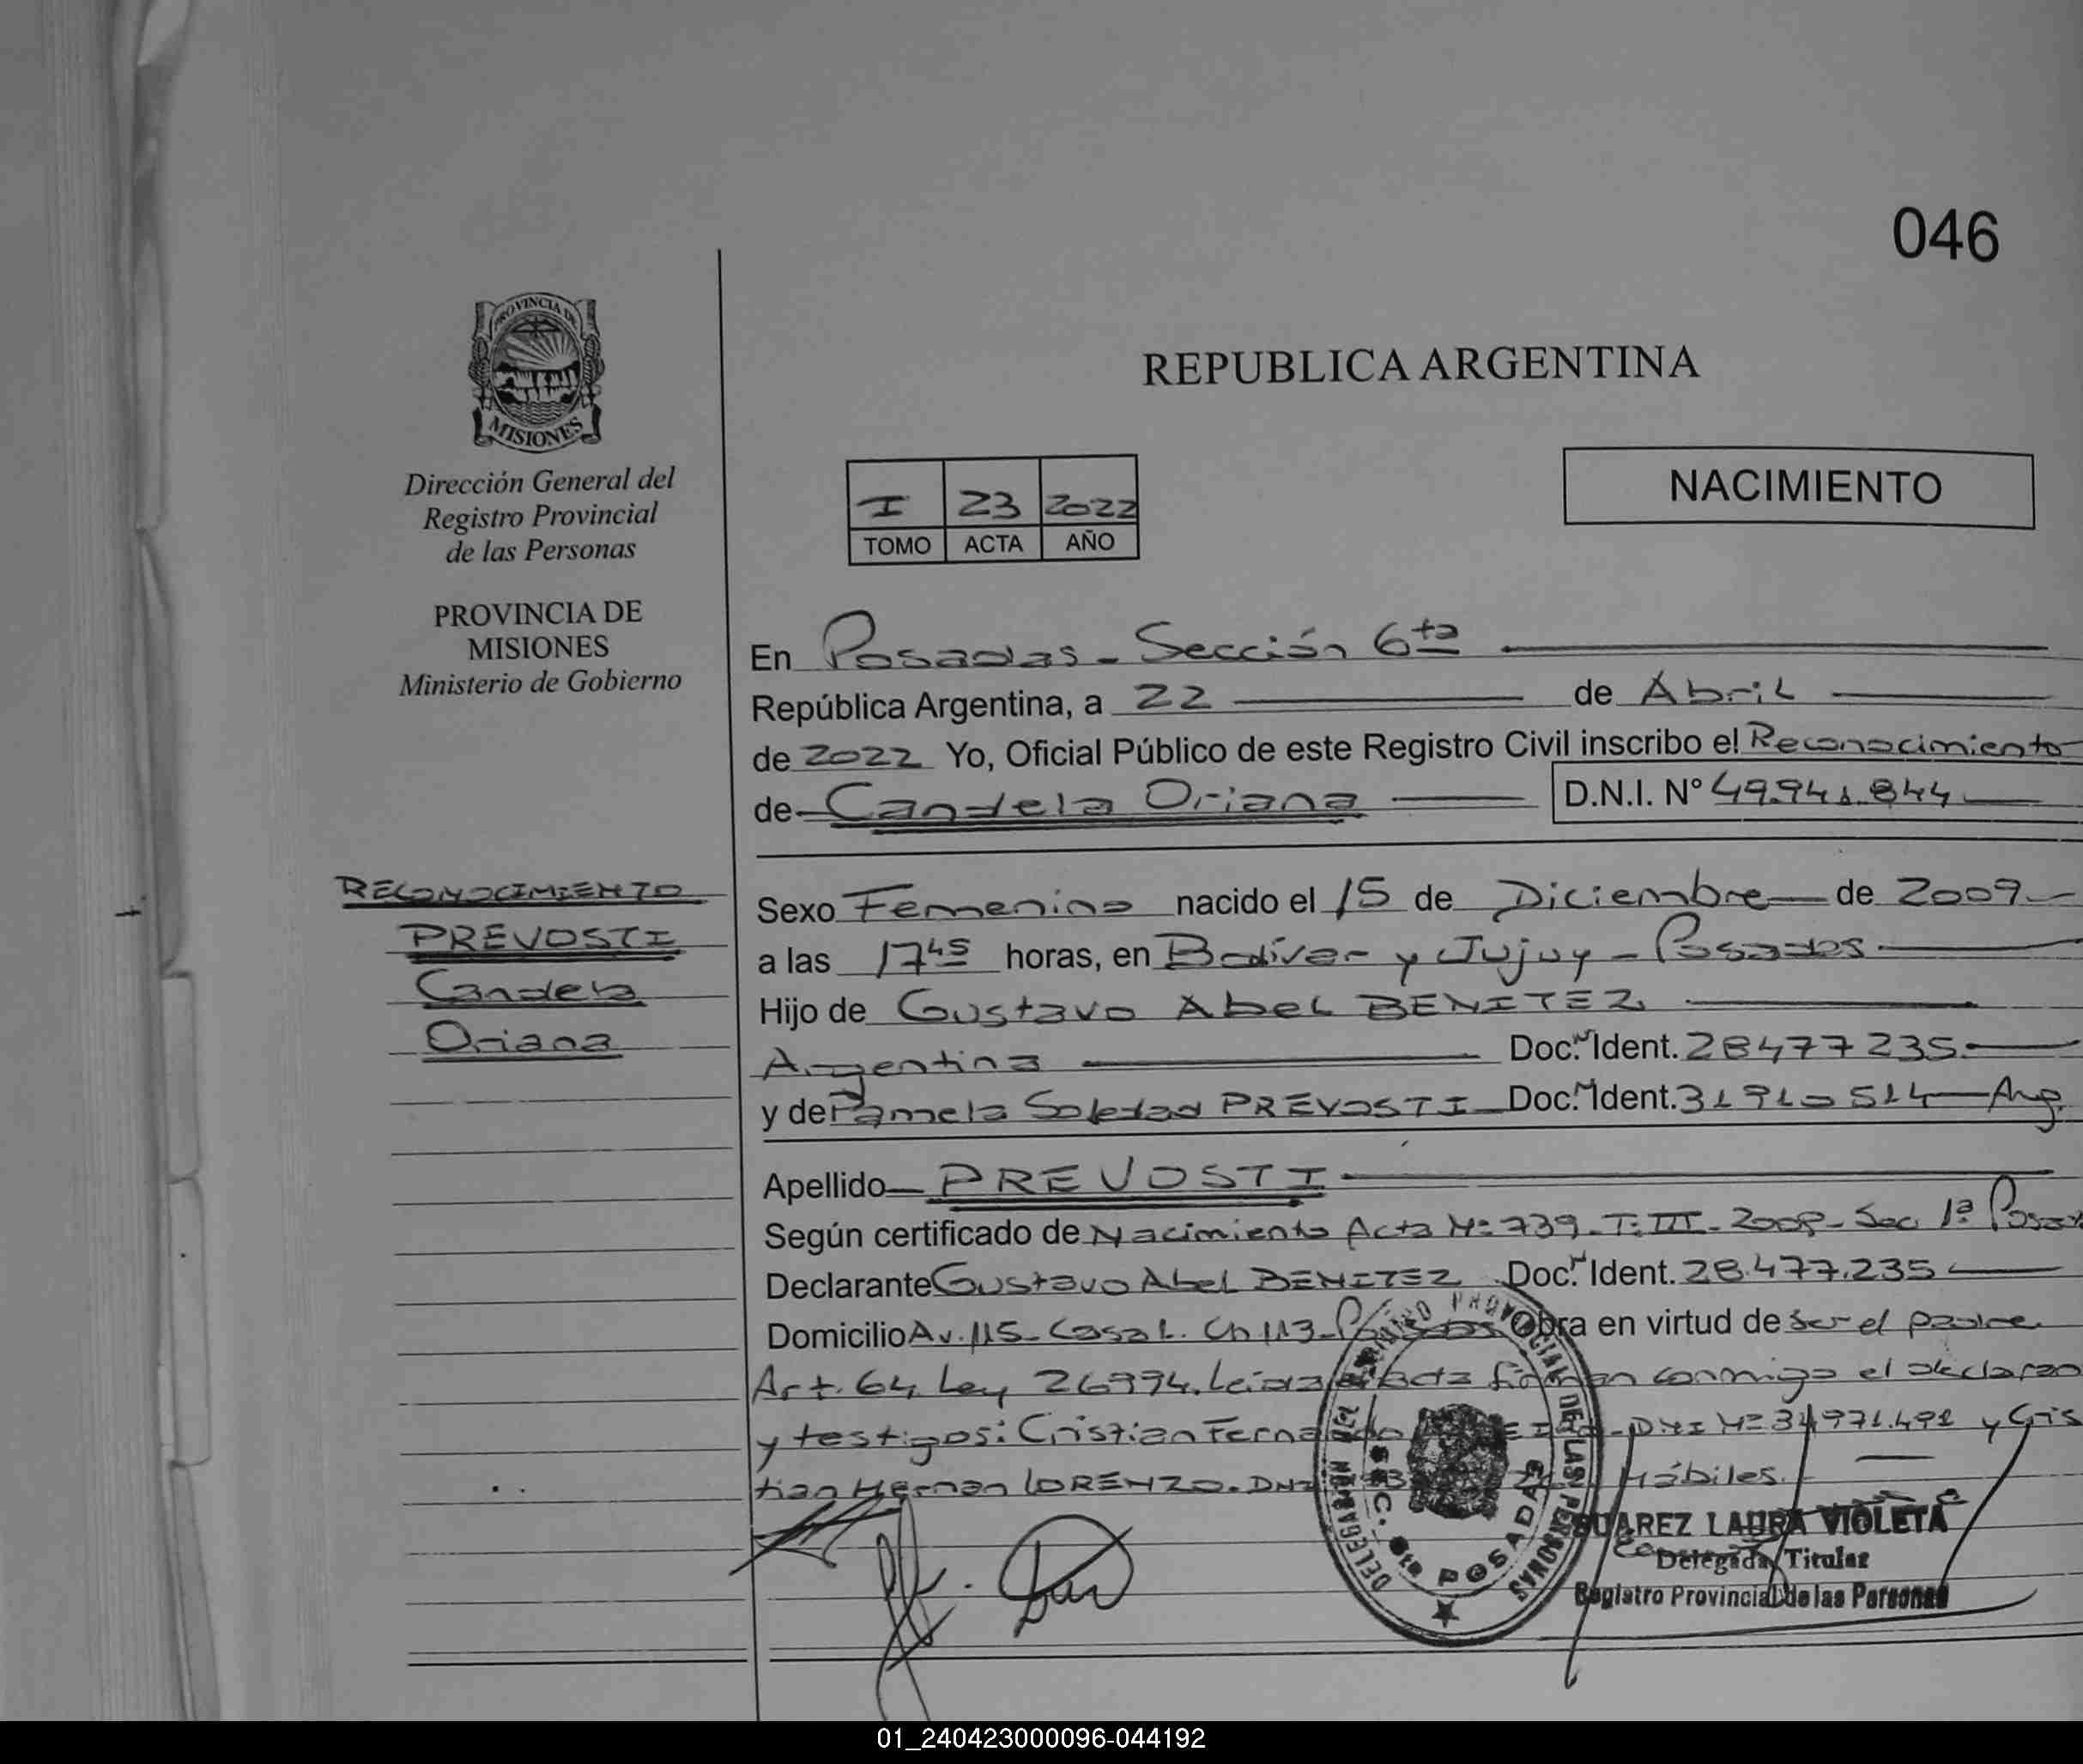 046
PROVINCIA DE
MISIONES
REPUBLICA ARGENTINA
Dirección General del
Registro Provincial
de las Personas
PROVINCIA DE
MISIONES
Ministerio de Gobierno
I 23 2022
TOMO ACTA AÑO
NACIMIENTO
En Posadas - Sección 6ta
República Argentina, a 22 de Abril
de 2022 Yo, Oficial Público de este Registro Civil inscribo el Reconocimiento
de Candela Oriana D.N.I. N° 49.941.844
RECONOCIMIENTO
PREVOSTI
Candela
Oriana
Sexo Femenino nacido el 15 de Diciembre de 2009
a las 17 45 horas, en Bolívar y Jujuy - Posadas
Hijo de Gustavo Abel BENITEZ
Argentina Doc. Ident. 28477235
y de Pamela Soledad PREVOSTI Doc. Ident. 31910514 Arg.
Apellido PREVOSTI
Según certificado de Nacimiento Acta Nº 739 - Tº III - Sec 1ª
Declarante Gustavo Abel BENITEZ Doc. Ident. 28.477.235
Domicilio Av. 115 - Casa 1. Ch 113 - Obra en virtud de ser el padre
Art. 64 Ley 26994. Leida Acta firman conmigo el
y testigos: Cristian DNI Nº y Cris
tian Hernan LORENZO. DNI Hábiles.
DELEGADO DEL REGISTRO PROVINCIAL DE LAS PERSONAS
SEC. 6ta POSADAS
SUAREZ LAURA VIOLETA
Delegada Titular
Registro Provincial de las Personas
01_240423000096-044192